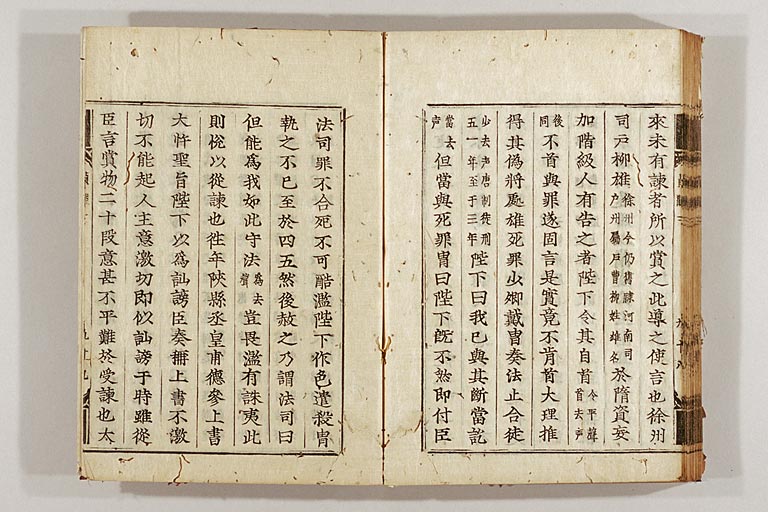 來未有諫者所以賞之此導之使言也徐州
司戶柳雄徐州今仍舊隸河南司戶州屬戶曹柳姓雄名於隋資妄
加階級人有告之者陛下令其自首令平聲首去聲
後同不首與罪遂固言是實竟不肯首大理推
得其僞將處雄死罪少卿戴胄奏法止合徒
少去声唐制徒刑五一年至于三年陛下曰我已與其斷當訖
當去声但當與死罪胄曰陛下旣不然即付臣
法司罪不合死不可酷濫陛下作色遣殺胄
執之不已至於四五然後赦之乃謂法司曰
但能爲我如此守法爲去聲豈畏濫有誅夷此
則悅以從諫也徃年陝縣丞皇甫德參上書
大忤聖旨陛下以爲訕謗臣奏稱上書不激
切不能起人主意激切即似訕謗于時雖從
臣言賞物二十段意甚不平難於受諫也太